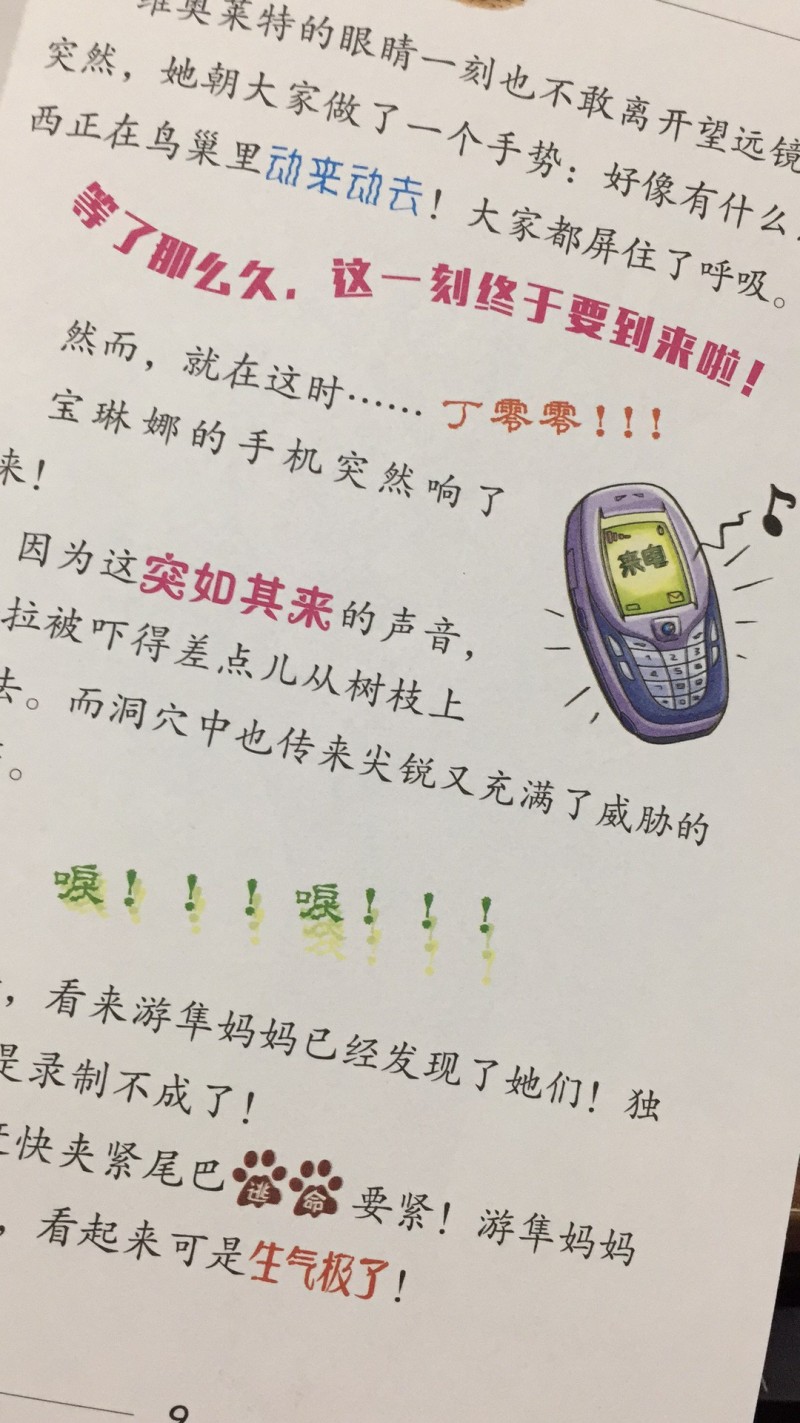 维奥莱特的眼睛一刻也不敢离开望远镜
突然，她朝大家做了一个手势：好像有什么
西正在鸟巢里动来动去！大家都屏住了呼吸。
等了那么久，这一刻终于要到来啦！
然而，就在这时……丁零零！！！
宝琳娜的手机突然响了
来！
来电
因为这突如其来的声音，
拉被吓得差点儿从树枝上
去。而洞穴中也传来尖锐又充满了威胁的
。
唳！！！唳！！！
，看来游隼妈妈已经发现了她们！独
是录制不成了！
快夹紧尾巴逃命要紧！游隼妈妈
，看起来可是生气极了！
9